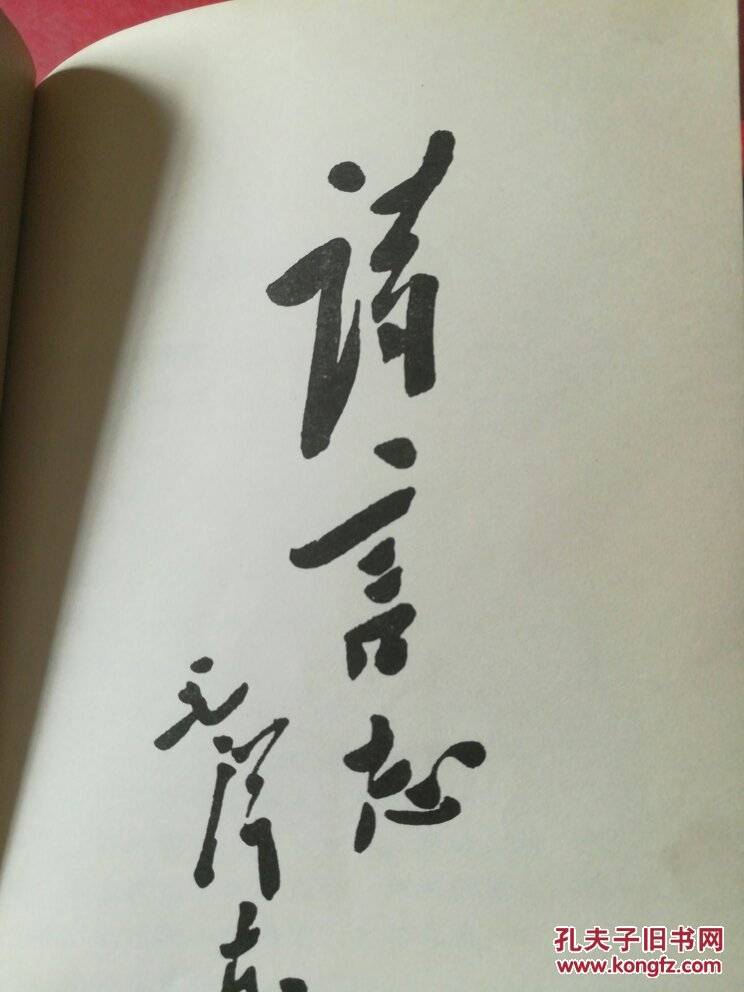 诗言志
毛泽东
孔夫子旧书网
www.kongfz.com